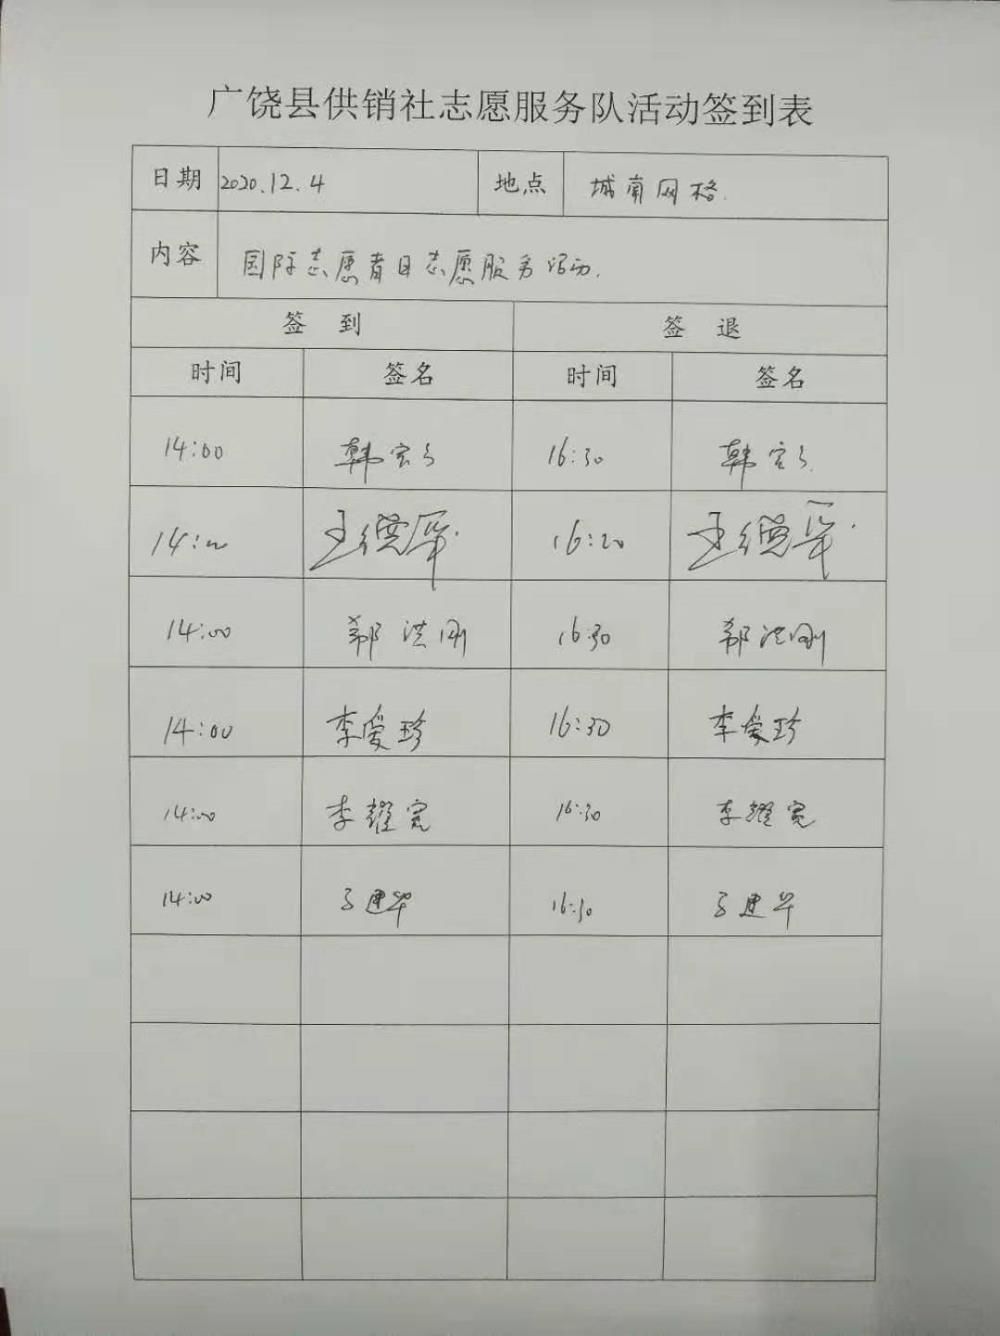 广饶县供销社志愿服务队活动签到表
日期 2020.12.4 地点 城南网格
内容 国际志愿者日志愿服务活动.
签 到 签 退
时间 签名 时间 签名
14:00 韩 16:30 韩
14:00 王德军 16:20 王德军
14:00 郗洪刚 16:30 郗洪刚
14:00 李爱珍 16:30 李爱珍
14:00 李耀宽 16:30 李耀宽
14:00 建华 16:30 建华